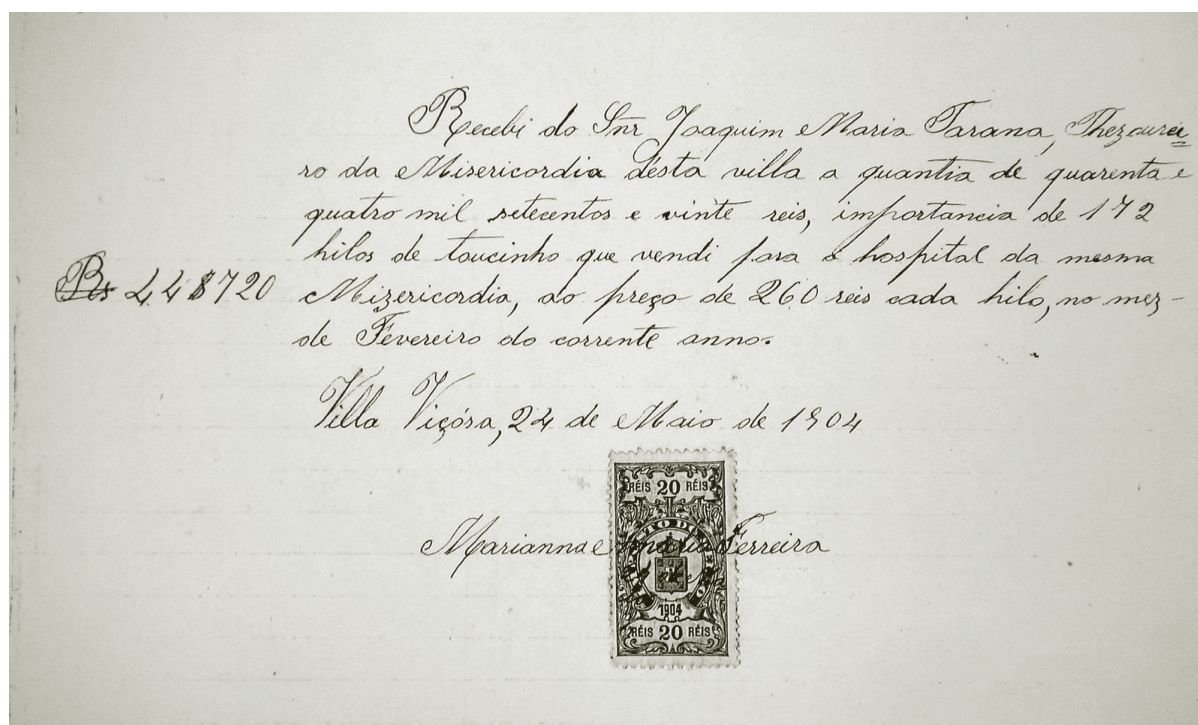 Recebi do Snr Joaquim Maria Tarana, Thezourei=
ro da Misericordia désta villa a quantia de quarenta e
quatro mil setecentos e vinte reis, importancia de 172
kilos de toucinho que vendi para o hospital da mesma
Rs 44$720
Mizericordia, ao preço de 260 reis cada kilo, no mez-
de Fevereiro do corrente anno.
Villa Viçósa, 24 de Maio de 1904
RÉIS 20 RÉIS
Marianna Ferreira
1904
RÉIS 20 RÉIS